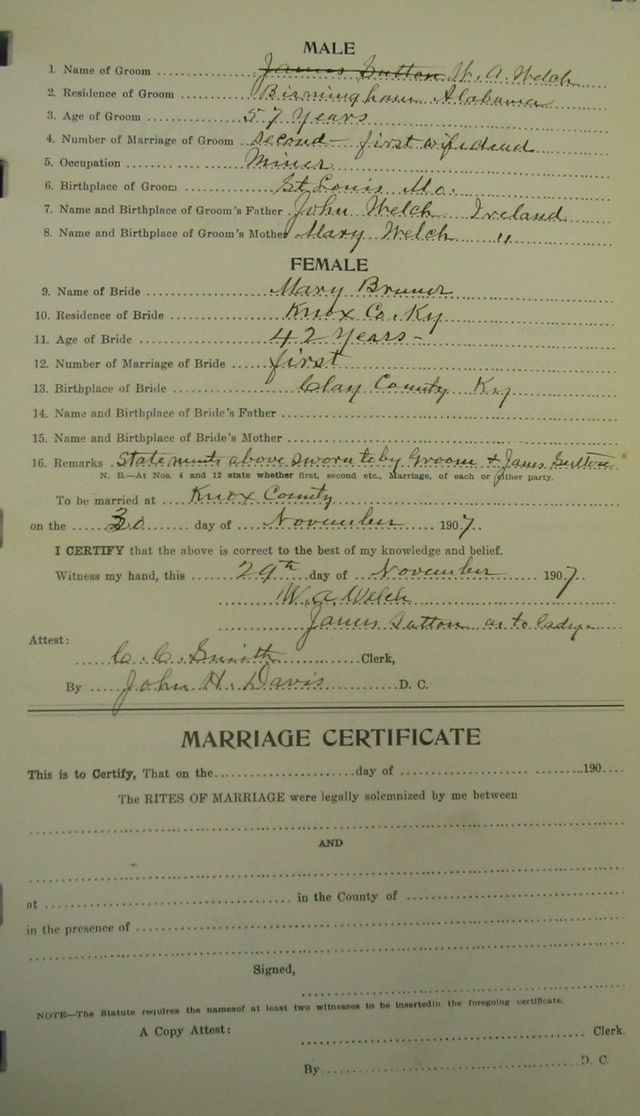 MALE
1. Name of Groom James Sutton W. A. Welch
2. Residence of Groom Birmingham Alabama
3. Age of Groom 57 Years
4. Number of Marriage of Groom second - first wife dead
5. Occupation Miner
6. Birthplace of Groom St Louis Mo.
7. Name and Birthplace of Groom's Father John Welch Ireland
8. Name and Birthplace of Groom's Mother Mary Welch "
FEMALE
9. Name of Bride Mary Bruner
10. Residence of Bride Knox Co. Ky
11. Age of Bride 42 Years -
12. Number of Marriage of Bride first
13. Birthplace of Bride Clay County Ky
14. Name and Birthplace of Bride's Father
15. Name and Birthplace of Bride's Mother
16. Remarks Statements above sworn to by Groom & James Sutton
N. B.—At Nos. 4 and 12 state whether first, second etc., Marriage, of each or either party.
To be married at Knox County
on the 30 day of November 1907.
I CERTIFY that the above is correct to the best of my knowledge and belief.
Witness my hand, this 29th day of November 1907
W. A. Welch
James Sutton as to lady
Attest:
C. C. Smith Clerk,
By John H. Davis D. C.
MARRIAGE CERTIFICATE
This is to Certify, That on the day of 190
The RITES OF MARRIAGE were legally solemnized by me between
AND
at in the County of
in the presence of
Signed,
NOTE—The Statute requires the namesof at least two witnesses to be insertedin the foregoing certificate.
A Copy Attest: Clerk.
By D. C.